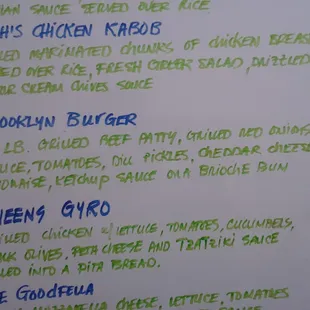 SAUCE SERVED OVER RICE
CHICKEN KABOB
MARINATED CHUNKS OF CHICKEN BREAS
OVER RICE, FRESH GREEK SALAD, DRIZZLED
CREAM CHIVES SAUCE
OOKLYN BURGER
LB. GRILLED BEEF PATTY, GRILLED RED ONIONS
TOMATOES, DILL PICKLES, CHEDDAR CHEESE
KETCHUP SAUCE ON A BRIOCHE BUN
EENS GYRO
CHICKEN W/ LETTUCE, TOMATOES, CUCUMBELS,
OLIVES, FETA CHEESE AND TZATZIKI SAUCE
LLED INTO A PITA BREAD.
GOODFELLA
CHEESE, LETTUCE, TOMATOES